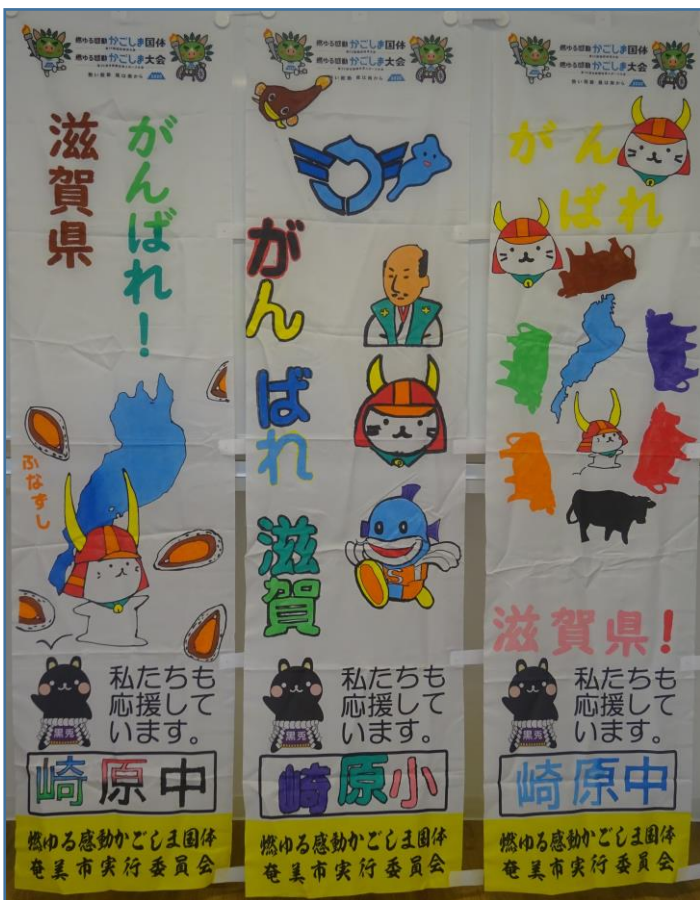 燃ゆる感動 かごしま国体
燃ゆる感動 かごしま大会
がんばれ!
滋賀県
ふなずし
黒秀
私たちも
応援して
います。
崎原中
燃ゆる感動かごしま国体
奄美市実行委員会
燃ゆる感動 かごしま国体
燃ゆる感動 かごしま大会
がん
ばれ
滋賀
黒秀
私たちも
応援して
います。
崎原小
燃ゆる感動かごしま国体
奄美市実行委員会
燃ゆる感動 かごしま国体
燃ゆる感動 かごしま大会
がん
ばれ
滋賀県!
黒秀
私たちも
応援して
います。
崎原中
燃ゆる感動かごしま国体
奄美市実行委員会